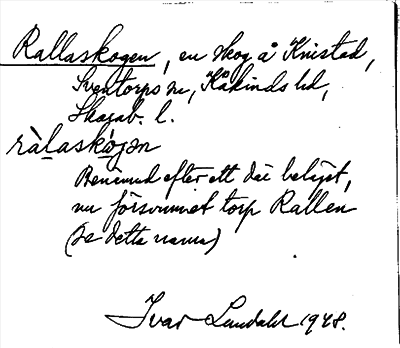 Rallaskogen, en skog å Knistad,
Sventorps sn, Kåkinds hd,
Skarab. l.
ràlaskó̱gən
Benämnd efter ett där beläget,
nu försvunnet torp Rallen
(se detta namn)
Ivar Lundahl 1948.